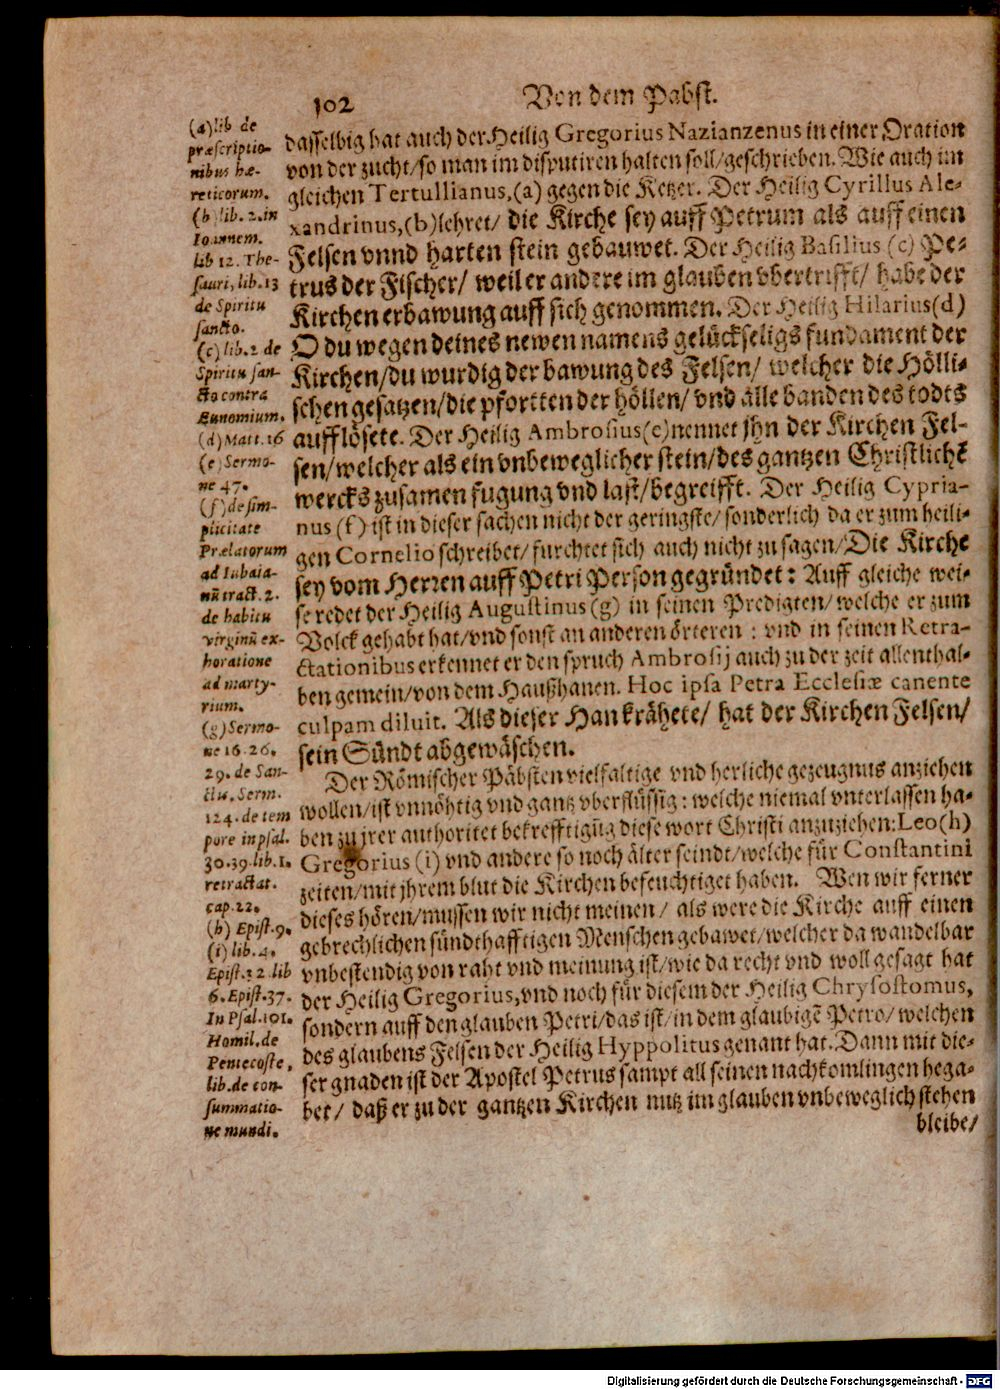 102
Von dem Pabst.
(a) lib de
præscriptio-
nibus hæ-
reticorum.
(b) lib. 2. in
Ioannem.
lib 12. The-
sauri, lib. 13
de Spiritu
sancto.
(c) lib. 2 de
Spiritu san-
cto contra
Eunomium.
(d) Matt. 16
(e) Sermo-
ne 47.
(f) de sim-
plicitate
Prælatorum
ad Iubaia-
nũ tract. 2.
de habitu
virginũ ex-
horatione
ad marty-
rium.
(g) Sermo-
ne 16. 26.
29. de San-
ctis. Serm.
124. de tem
pore in psal.
30. 39. lib. 1.
retractat.
cap. 22.
(h) Epist. 9.
(i) lib. 4.
Epist. 32 lib
6. Epist. 37.
In Psal. 101.
Homil. de
Pentecoste,
lib. de con-
summatio-
ne mundi.
dasselbig hat auch der Heilig Gregorius Nazianzenus in einer Oration
von der zucht/ so man im disputiren halten soll/ geschrieben. Wie auch im
gleichen Tertullianus, (a) gegen die Ketzer. Der Heilig Cyrillus Ale-
xandrinus, (b) lehret/ die Kirche sey auff Petrum als auff einen
Felsen vnnd harten stein gebauwet. Der Heilig Basilius (c) Pe-
trus der Fischer/ weil er andere im glauben vbertrifft/ habe der
Kirchen erbawung auff sich genommen. Der Heilig Hilarius (d)
O du wegen deines newen namens gelückseligs fundament der
Kirchen/ du wurdig der bawung des Felsen/ welcher die Hölli-
schen gesatzen/ die pfortten der höllen/ vnd alle banden des todts
aufflösete. Der Heilig Ambrosius (e) nennet jhn der Kirchen Fel-
sen/ welcher als ein vnbeweglicher stein/ des gantzen Christlichẽ
wercks zusamen fugung vnd last/ begreifft. Der Heilig Cypria-
nus (f) ist in dieser sachen nicht der geringste/ sonderlich da er zum heili-
gen Cornelio schreibet/ furchtet sich auch nicht zu sagen/ Die Kirche
sey vom Herren auff Petri Person gegründet: Auff gleiche wei-
se redet der Heilig Augustinus (g) in seinen Predigten/ welche er zum
Volck gehabt hat/ vnd sonst an anderen örteren: vnd in seinen Retra-
ctationibus erkennet er den spruch Ambrosij auch zu der zeit allenthal-
ben gemein/ von dem Haußhanen. Hoc ipsa Petra Ecclesiæ canente
culpam diluit. Als dieser Han krähete/ hat der Kirchen Felsen/
sein Sündt abgewäschen.
Der Römischer Päbsten vielfaltige vnd herliche gezeugnus anziehen
wollen/ ist vnnöhtig vnd gantz vberflüssig: welche niemal vnterlassen ha-
ben zu jrer authoritet bekrefftigũg diese wort Christi anzuziehen: Leo (h)
Gregorius (i) vnd andere so noch älter seindt/ welche für Constantini
zeiten/ mit jhrem blut die Kirchen befeuchtiget haben. Wen wir ferner
dieses hören/ mussen wir nicht meinen/ als were die Kirche auff einen
gebrechlichen sündthafftigen Menschen gebawet/ welcher da wandelbar
vnbestendig von raht vnd meinung ist/ wie da recht vnd woll gesagt hat
der Heilig Gregorius, vnd noch für diesem der Heilig Chrysostomus,
sondern auff den glauben Petri/ das ist/ in dem glaubigẽ Petro/ welchen
des glaubens Felsen der Heilig Hyppolitus genant hat. Dann mit die-
ser gnaden ist der Apostel Petrus sampt all seinen nachkomlingen bega-
bet/ daß er zu der gantzen Kirchen nutz im glauben vnbeweglich stehen
bleibe/
Digitalisierung gefördert durch die Deutsche Forschungsgemeinschaft - DFG